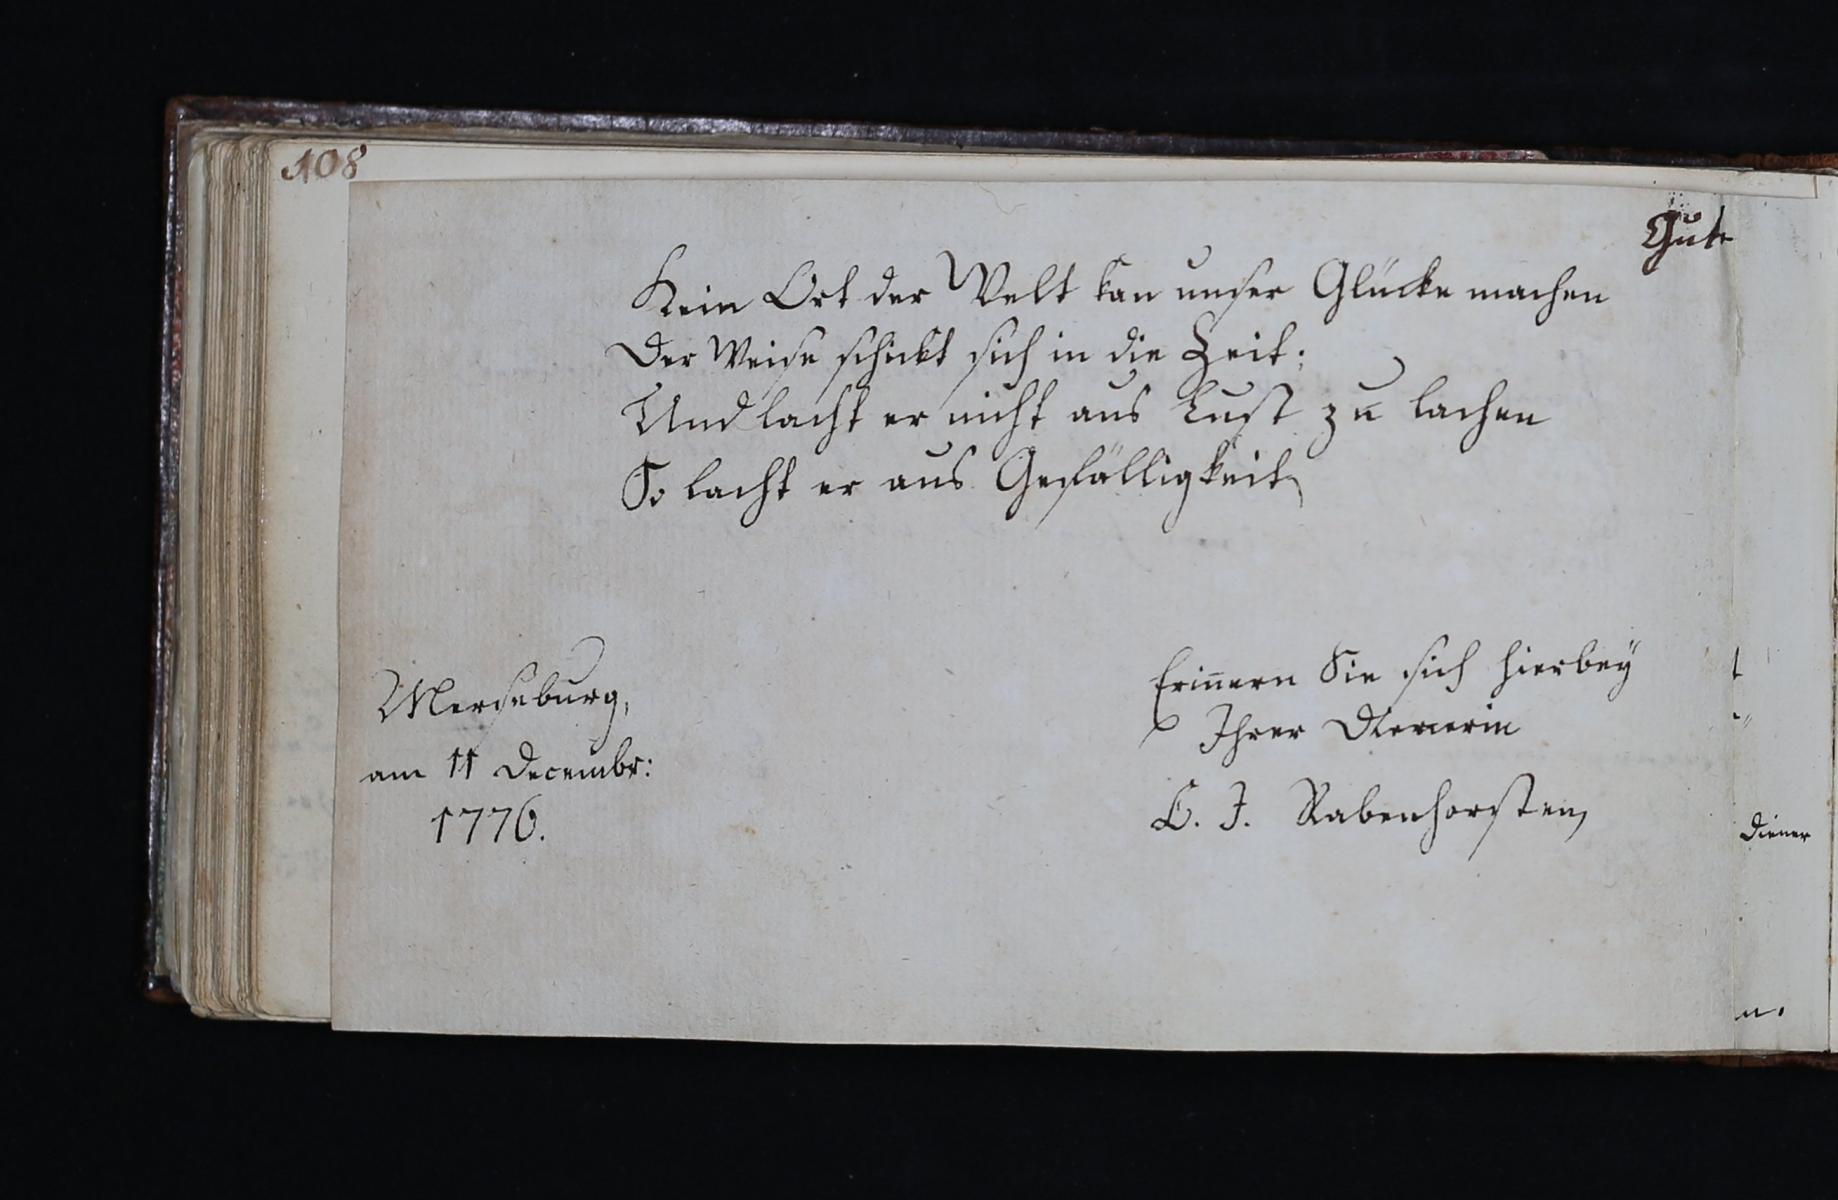 108
Gut
Kein Ort der Welt kan unser Glücke machen
Der Weise schickt sich in die Zeit;
Und lacht er nicht aus Lust zu lachen
So lacht er aus Gefälligkeit
Merseburg,
am 11 Decembr:
1776.
Erin̄ern Sie sich hierbey
Ihrer Dienerin
C. J. Rabenhorsten,
Diener